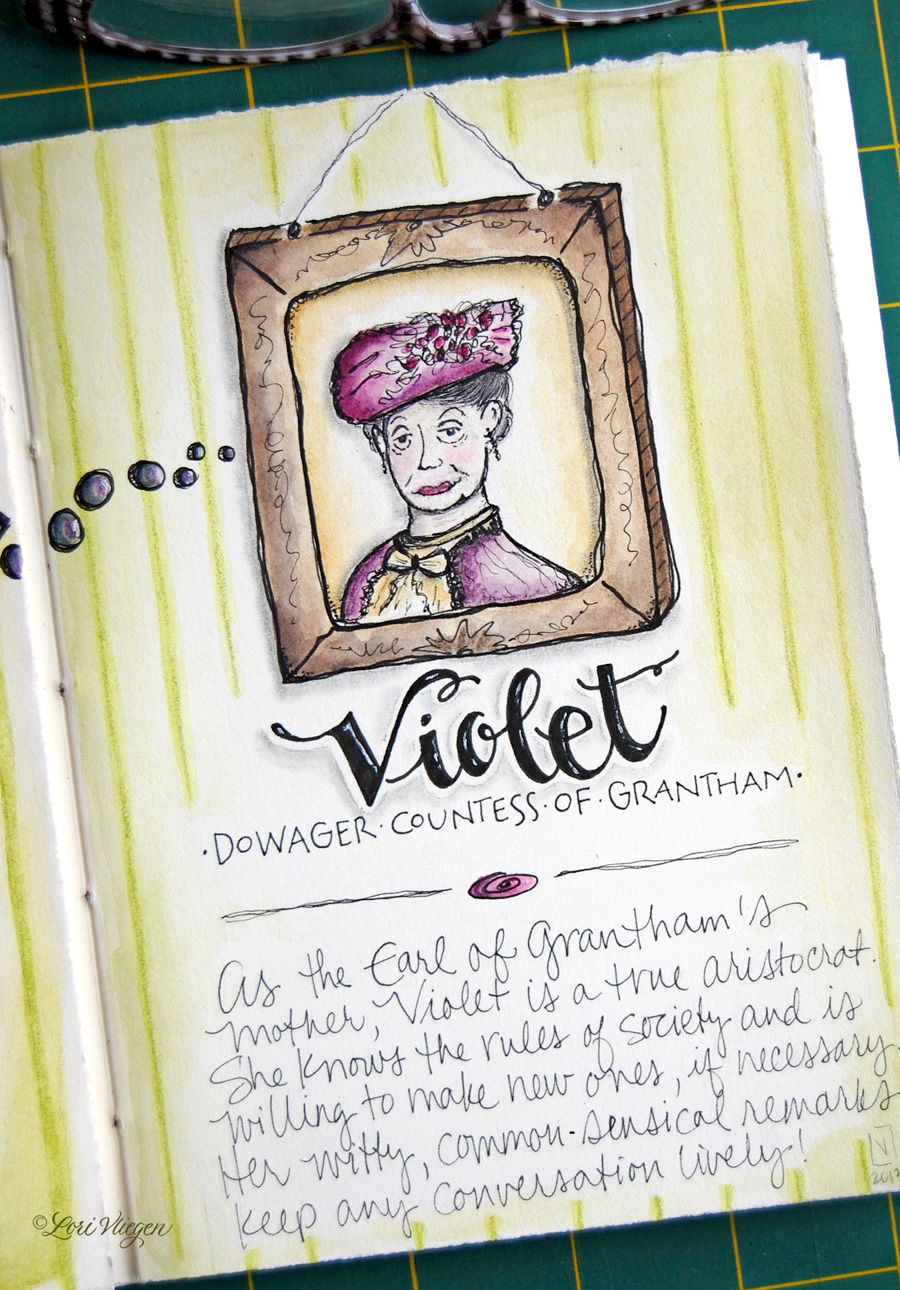 Violet
·DOWAGER·COUNTESS·OF·GRANTHAM·
As the Earl of Grantham's
mother, Violet is a true aristocrat.
She knows the rules of society and is
willing to make new ones, if necessary.
Her witty, common-sensical remarks
keep any conversation lively!
V
2013
©Lori Vliegen